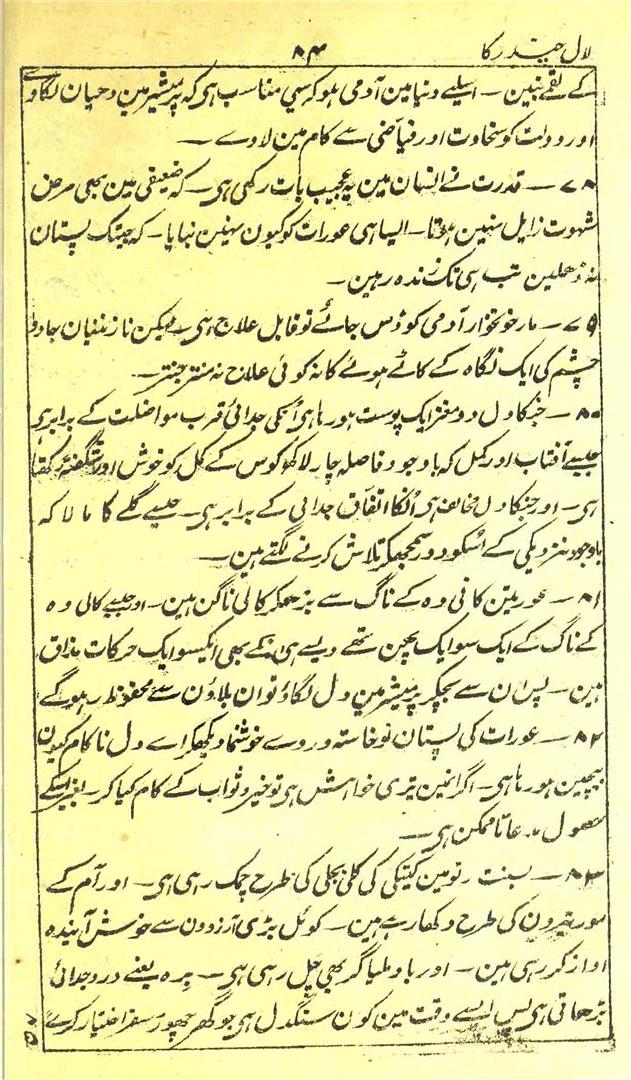 لال چندرکا
۸۴
کے لقے نہین ۔ اسلیے دنیا مین آدمی ہو کے یہی مناسب ہی کہ پرمیشر مین دھیان لگاوے
اور دولت کو سخاوت اور فیاضی سے کام مین لاوے ۔
۷۸ ۔ قدرت نے انسان مین یہ عجیب بات رکھی ہی ۔ کہ ضعیفی مین بھی مرض
شہوت زایل نہین ہوتا ۔ ایسا ہی عورات کو کیون نہین بنایا ۔ کہ جبتک پستان
نہ ڈھلین تب ہی تک زندہ رہین ۔
۷۹ ۔ مار خونخوار آدمی کو ڈس جائے تو قابل علاج ہی ۔ لیکن نازنینان جادو
چشم کی ایک نگاہ کے کاٹے ہوئے کا نہ کوئی علاج نہ منتر جنتر ۔
۸۰ ۔ جنکا دل دو مغز ایک پوست ہو رہا ہی اُنکی جدائی قرب مواصلت کے برابر ہی
جیسے آفتاب اور کمل کہ باوجود فاصلہ چار لاکھ کوس کے کمل کو خوش اور شگفتہ رکھتا
ہی ۔ اور جنکا دل مخالف ہی اُنکا اتفاق جدائی کے برابر ہی ۔ جیسے گلے کا مالا کہ
باوجود نزدیکی کے اُسکو دور سمجھکر تلاش کرنے لگتے ہین ۔
۸۱ ۔ عورتین کالی دہ کے ناگ سے بڑھکر کالی ناگن ہین ۔ اور جیسے کالی دہ
کے ناگ کے ایک سو ایک پھن تھے ویسے ہی انکے بھی ایکسو ایک حرکات مذاق
ہین ۔ پس ان سے بچکر پرمیشر مین دل لگاؤ تو ان بلاؤن سے محفوظ رہو گے
۸۲ ۔ عورات کی پستان نوخاستہ و روے خوشنما دیکھکر اے دل ناکام کیون
بیچین ہو رہا ہی ۔ اگر انمین تیری خواہش ہی تو خیر و ثواب کے کام کیا کر ۔ بغیر اسکے
حصول مدعا ناممکن ہی ۔
۸۳ ۔ بسنت رتو مین کیتکی کی کلی بجلی کی طرح چمک رہی ہی ۔ اور آم کے
مور تیرون کی طرح دکھا رہے ہین ۔ کوئل بڑی آرزوون سے خوش آیندہ
اواز کر رہی ہین ۔ اور باد ملیاگر بھی چل رہی ہی ۔ برہ یعنے درد جدائی
بڑھاتی ہی پس ایسے وقت مین کون سنگدل ہی جو گھر چھوڑ سفر اختیار کرے